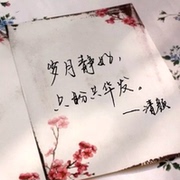 岁月静好，
与君共华发。
——清颜